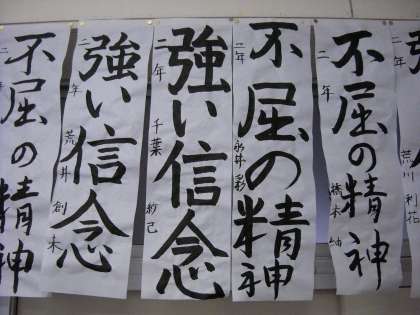 荒川
二年
不屈の精神
二年
橋本
不屈の精神
二年
永井彩
強い信念
二年
千葉
強い信念
二年
荒井創木
不屈の精神
二年